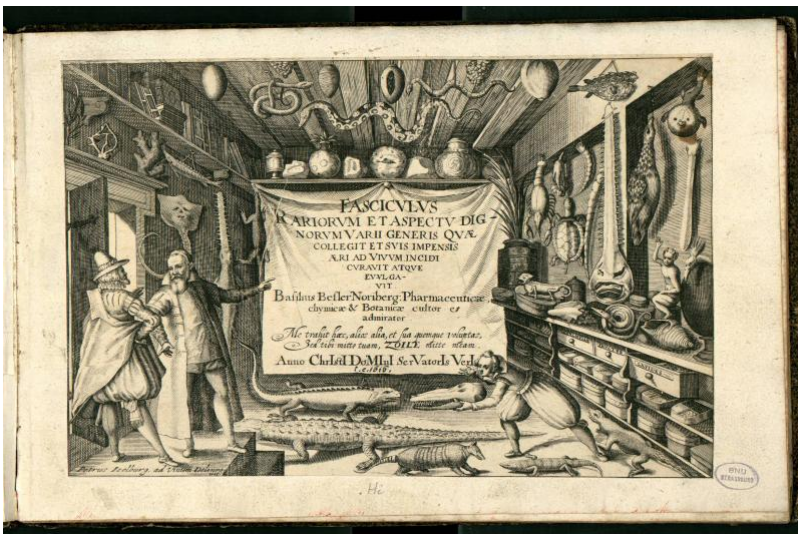 FASCICVLVS
RARIORVM ET ASPECTV DIG-
NORVM VARII GENERIS QVÆ
COLLEGIT ET SVIS IMPENSIS
ÆRI AD VIVVM INCIDI
CVRAVIT ATQVE
EVVLGA-
VIT
Basilius Besler Noriberg: Pharmaceuticæ,
chymicæ & Botanicæ cultor et
admirator
Me trahit hæc, alios alia, et sua quemque voluptas,
Sed tibi mitto tuam, ZOILE, mitte meam.
Anno ChrIstI DoMInI SerVatorIs VerI.
Petrus Iselburg ad Vivum
BNU
STRASBOURG